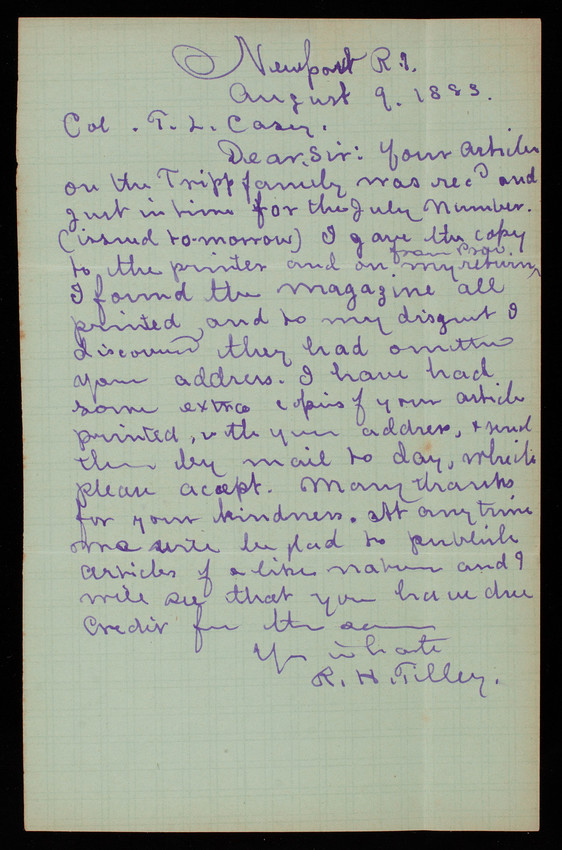 Newport R.I.
August 9. 1883.
Col. T. L. Casey.
Dear Sir: Your article
on the Tripp family was rec'd and
just in time for the July number.
(issued to-morrow) I gave the copy
to the printer and on my return from Prov.
I found the magazine all
printed, and to my disgust I
discovered they had omitted
your address. I have had
some extra copies of your article
printed, with your address, & send
them by mail to day, which
please accept. Many thanks
for your kindness. At any time
we will be glad to publish
articles of a like nature and I
will see that you have due
credit for the same
Yrs in haste
R. H. Tilley.